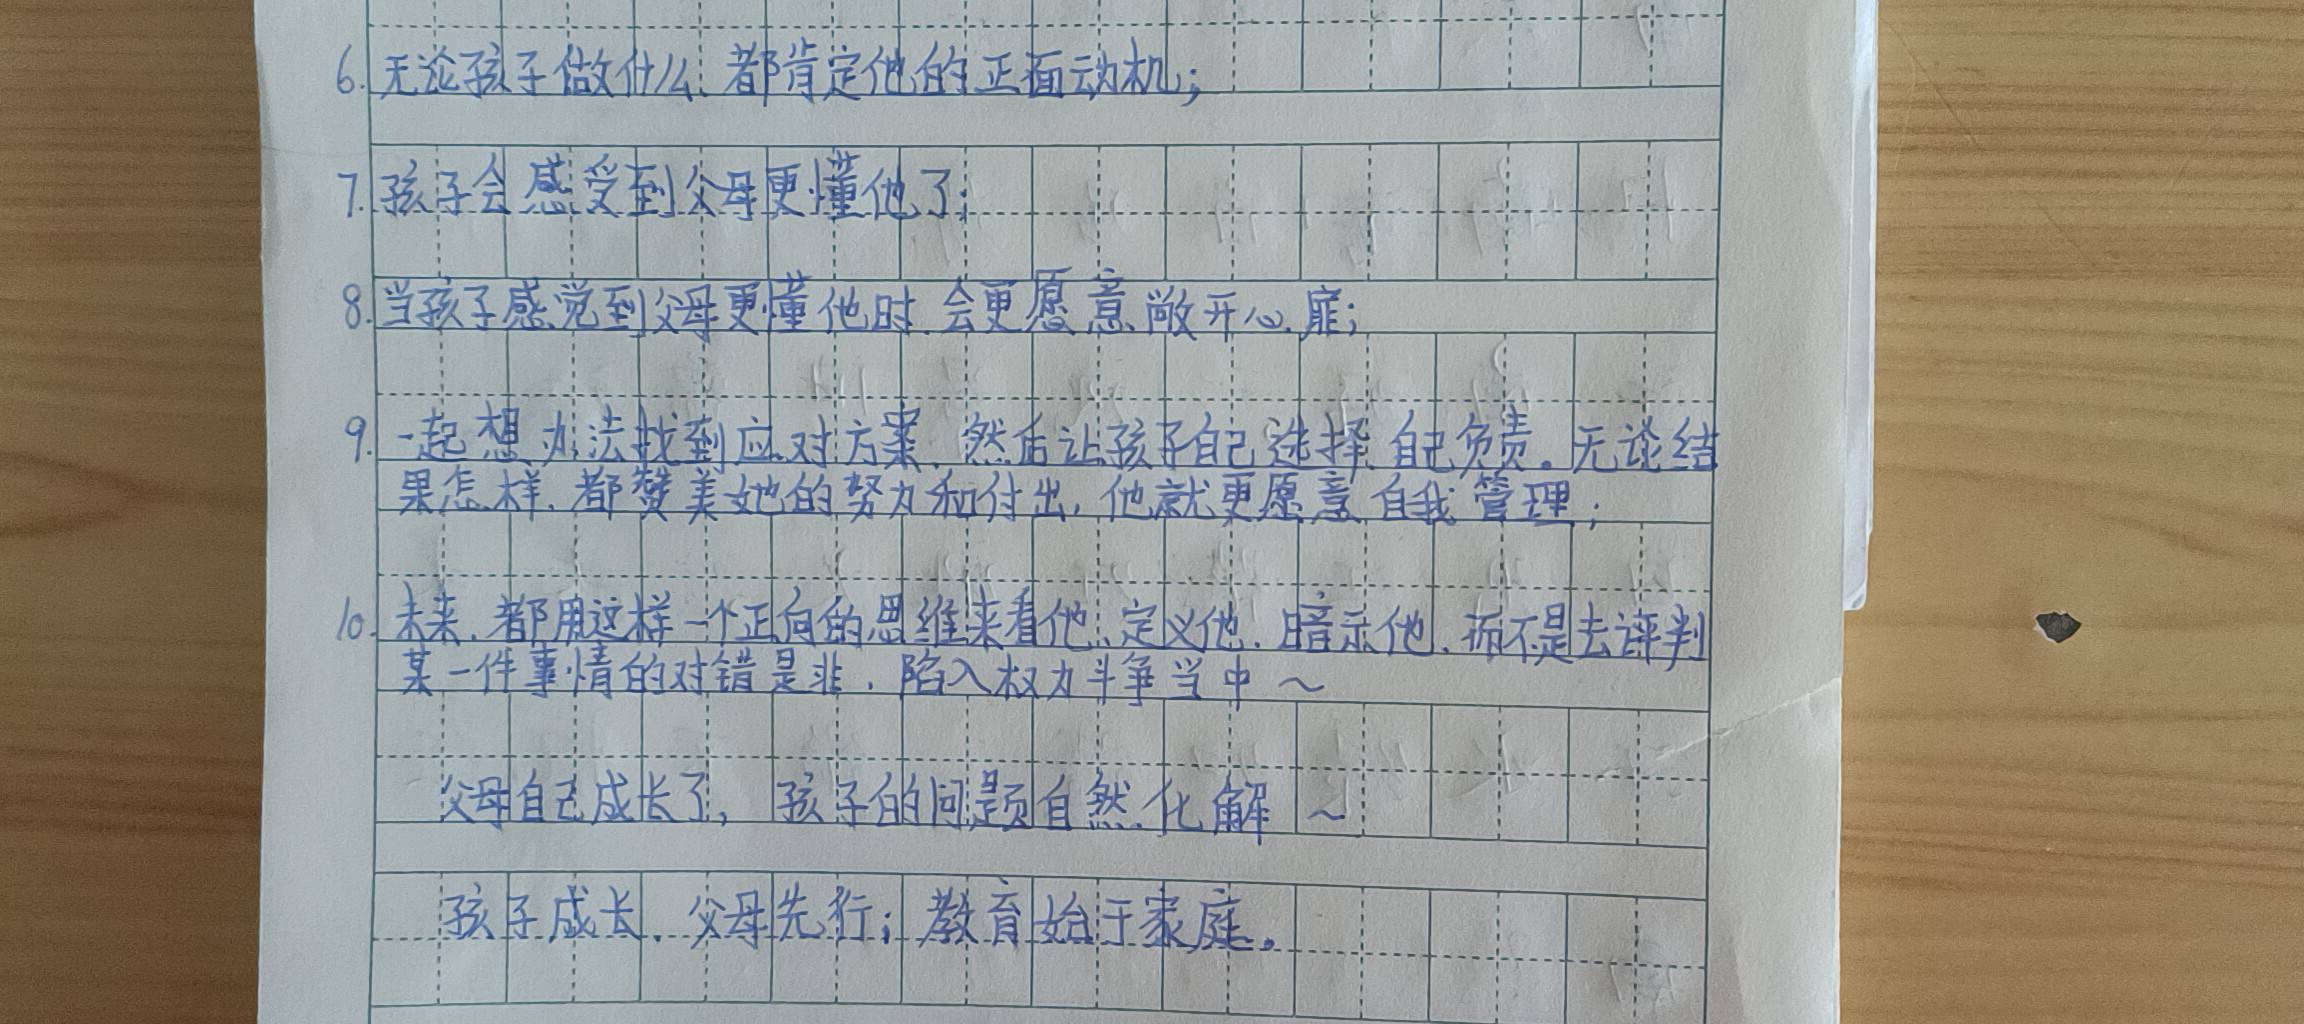 6.无论孩子做什么、都肯定他的正面动机;
7.孩子会感受到父母更懂他了;
8.当孩子感觉到父母更懂他时、会更愿意敞开心扉;
9.一起想办法找到应对方案、然后让孩子自己选择、自己负责。无论结
果怎样、都赞美她的努力和付出,他就更愿意自我管理;
10.未来、都用这样一个正向的思维来看他、定义他、暗示他、而不是去评判
某一件事情的对错是非、陷入权力斗争当中~
父母自己成长了,孩子的问题自然化解~
孩子成长、父母先行;教育始于家庭。